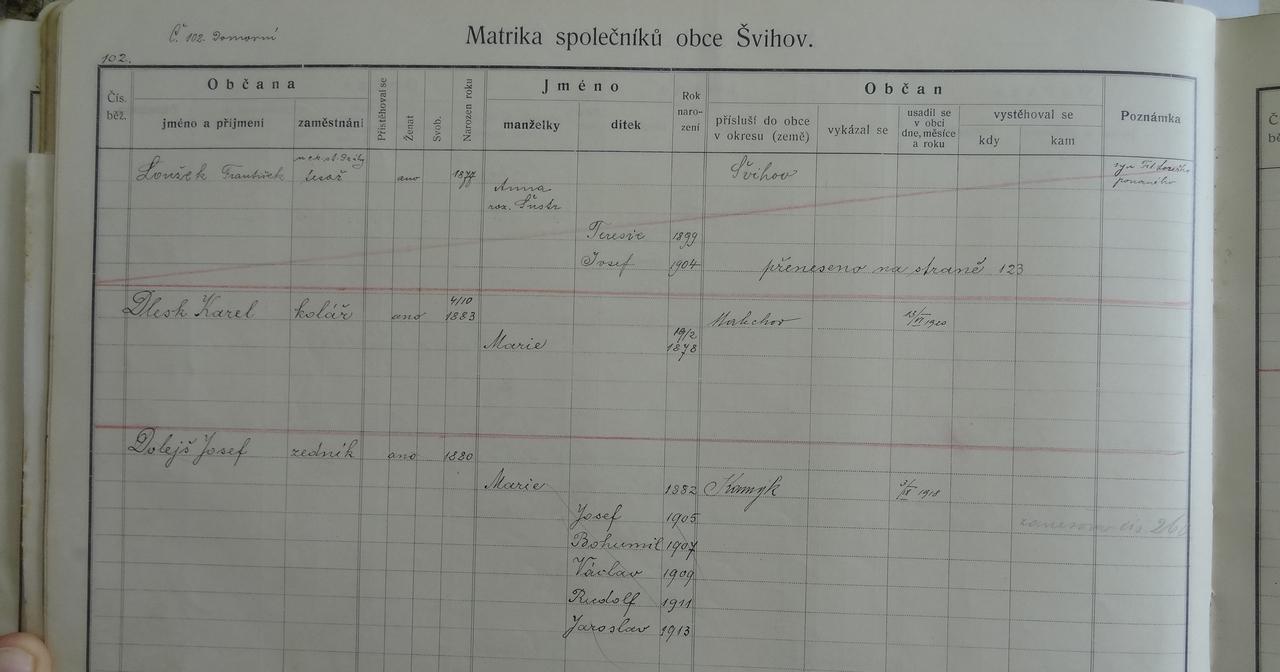 Č. 102. Domovní
Matrika společníků obce Švihov.
102.
Čís. běž.
Občana
jméno a příjmení
zaměstnání
Přistěhoval se
Ženat
Svob.
Narozen roku
Jméno
manželky
dítek
Rok naro- zení
Občan
přísluší do obce v okresu (země)
vykázal se
usadil se v obci dne, měsíce a roku
vystěhoval se
kdy
kam
Poznámka
Loužek František tesař ano 1877 Švihov syn
Anna
roz. Šustr
Teresie 1899
Josef 1904 přeneseno na straně 123
Dlesk Karel kolář ano 4/10 1883 1920
Marie 19/2 1878
Dolejš Josef zedník ano 1880
Marie 1882 Kamýk 3/IX 1918
Josef 1905
Bohumil 1907
Václav 1909
Rudolf 1911
Jaroslav 1913